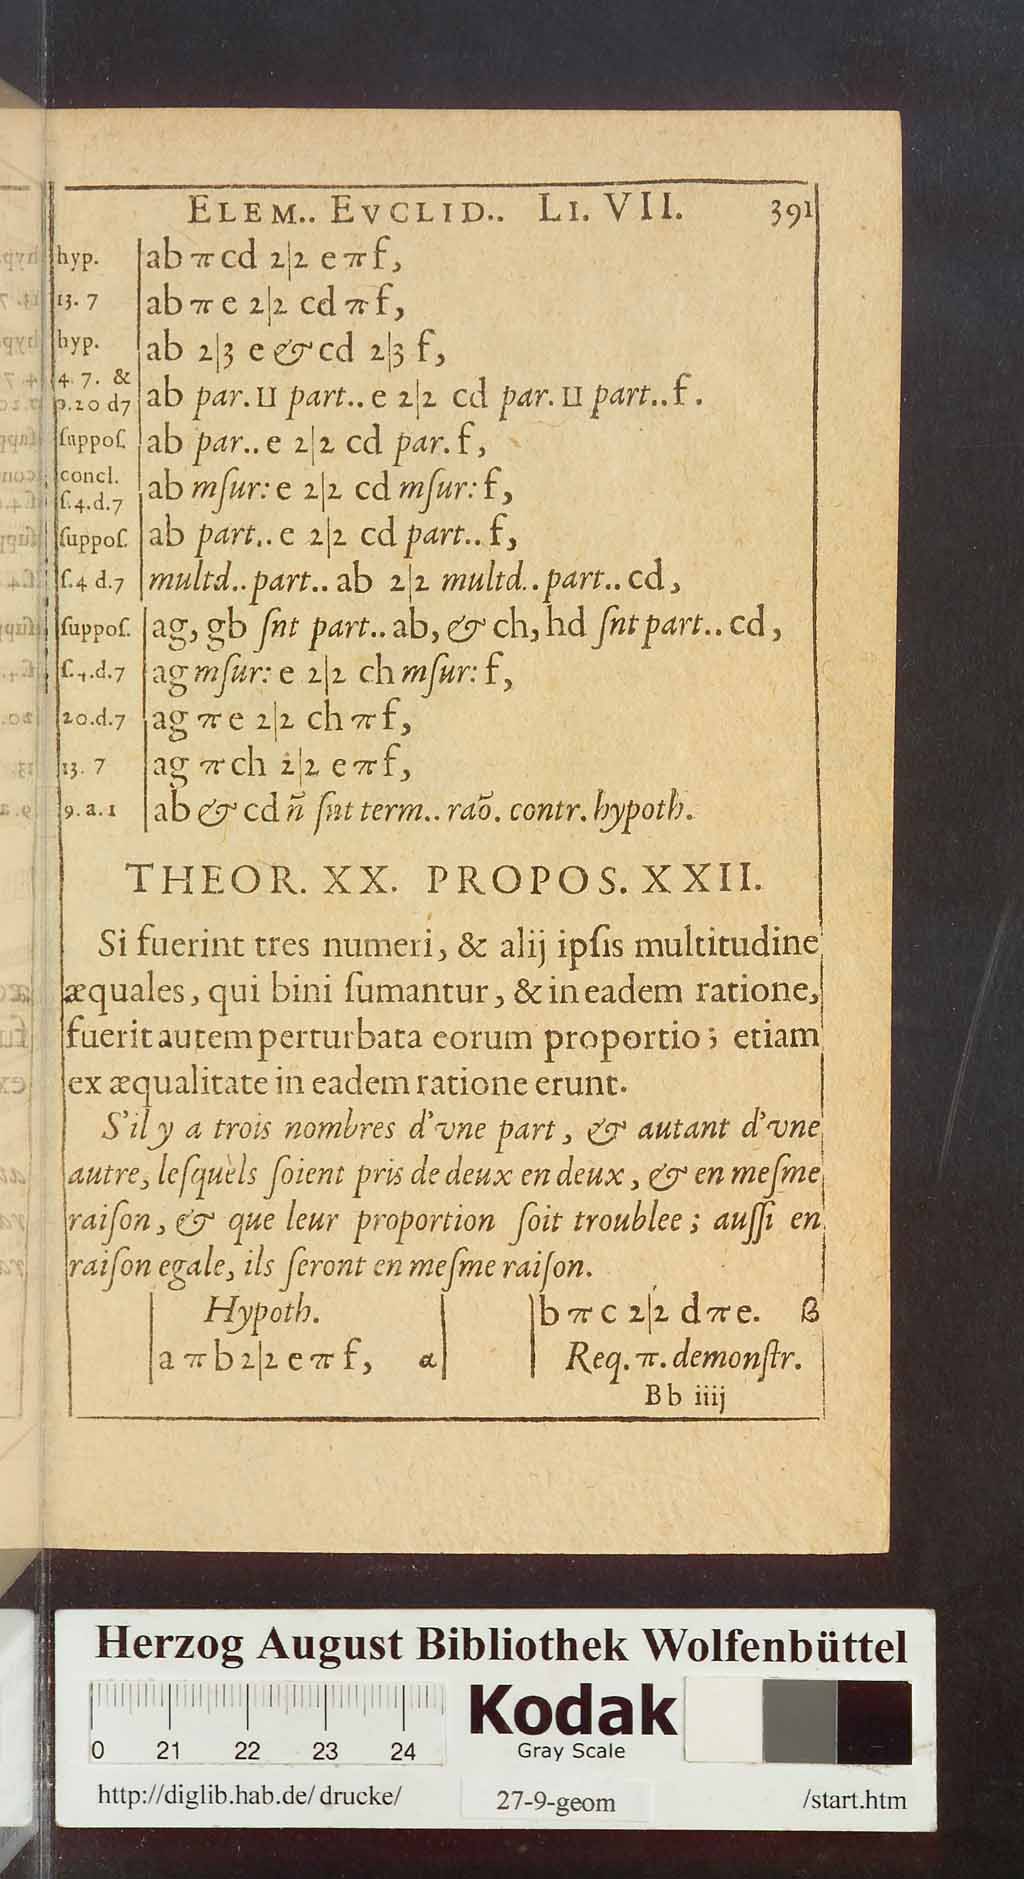 ELEM.. EVCLID.. LI. VII. 391
hyp. ab π cd 2|2 e π f,
13. 7 ab π e 2|2 cd π f,
hyp. ab 2|3 e & cd 2|3 f,
4. 7. &
p.20 d7 ab par. II part.. e 2|2 cd par. II part.. f.
ſuppoſ. ab par.. e 2|2 cd par. f,
concl.
ſ.4.d.7 ab mſur: e 2|2 cd mſur: f,
ſuppoſ. ab part.. e 2|2 cd part.. f,
ſ.4 d.7 multd.. part.. ab 2|2 multd.. part.. cd,
ſuppoſ. ag, gb ſnt part.. ab, & ch, hd ſnt part.. cd,
ſ.4.d.7 ag mſur: e 2|2 ch mſur: f,
20.d.7 ag π e 2|2 ch π f,
13. 7 ag π ch 2|2 e π f,
9. a. 1 ab & cd ñ ſnt term.. raõ. contr. hypoth.
THEOR. XX. PROPOS. XXII.
Si fuerint tres numeri, & alij ipſis multitudine
æquales, qui bini ſumantur, & in eadem ratione,
fuerit autem perturbata eorum proportio; etiam
ex æqualitate in eadem ratione erunt.
S'il y a trois nombres d'vne part, & autant d'vne
autre, leſquels ſoient pris de deux en deux, & en meſme
raiſon, & que leur proportion ſoit troublee; auſſi en
raiſon egale, ils ſeront en meſme raiſon.
Hypoth. b π c 2|2 d π e. ß
a π b 2|2 e π f, α Req. π. demonſtr.
Bb iiij
Herzog August Bibliothek Wolfenbüttel
Kodak
Gray Scale
0 21 22 23 24
http://diglib.hab.de/drucke/ 27-9-geom /start.htm